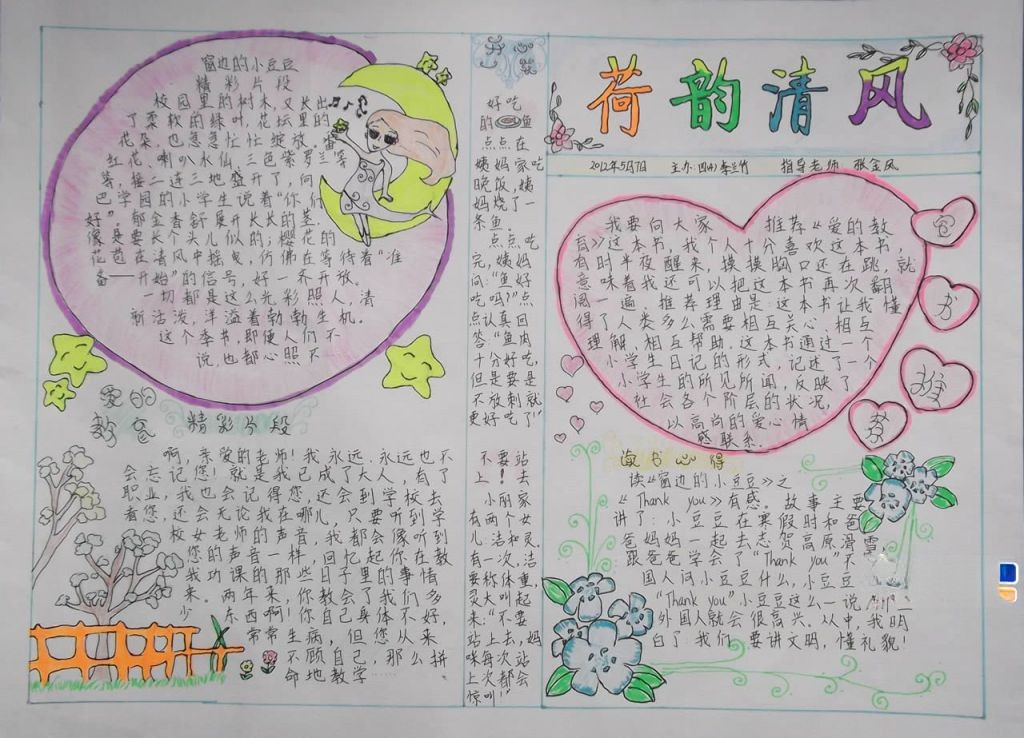 荷韵清风
2012年5月7日 主办 四(4)李兰竹 指导老师 张金凤
窗边的小豆豆
精彩片段
校园里的树木,又长出
了柔软的绿叶,花坛里的
花朵,也急急忙忙绽放,番
红花、喇叭水仙、三色紫罗兰等
等,接二连三地盛开了,向
巴学园的小学生说着“你们
好”。郁金香舒展开长长的茎,
像是要长个头儿似的;樱花的
花苞在清风中摇曳,仿佛在等待着“准
备——开始”的信号,好一齐开放。
一切都是这么光彩照人,清
新活泼,洋溢着勃勃生机。
这个季节,即使人们不
说,也都心照不
爱的
教爸 精彩片段
啊,亲爱的老师!我永远、永远也不
会忘记您!就是我已成了大人,有了
职业,我也会记得您,还会到学校去
看您,还会无论我在哪儿,只要听到学
校女老师的声音,我都会像听到
您的声音一样,回忆起你在教
我功课的那些日子里的事情
来。两年来,你教会了我们多
少东西啊!你自己身体不好,
常常生病,但您从来
不顾自己,那么拼
命地教学……
开心
好吃
的鱼
点点在
姨妈家吃
晚饭,姨
妈烧了一
条鱼。
点点吃
完,姨妈
问:“鱼好
吃吗?”点
点认真回
答“鱼肉
十分好吃,
但是要是
不放刺就
更好吃了!”
不要站
上!去
小丽家
有两个女
儿:洁和灵.
有一次,洁
要称体重,
灵大叫起
来:“不要
站上去,妈
咪每次站
上次都会
惊叫!”
我要向大家 推荐《爱的教
育》这本书,我个人十分喜欢这本书,
有时半夜醒来,摸摸胸口还在跳,就
意味着我还可以把这本书再次翻
阅一遍。推荐理由是:这本书让我懂
得了人类多么需要相互关心、相互
理解,相互帮助.这本书通过一个
小学生日记的形式,记述了一个
小学生的所见所闻,反映了
社会各个阶层的状况,
以高尚的爱心情
感联系.
读书心得
读《窗边的小豆豆》之
《Thank you》有感。故事主要
讲了:小豆豆在寒假时和爸
爸妈妈一起去志贺高原滑雪,
跟爸爸学会了“Thank you”不
国人问小豆豆什么,小豆豆
“Thank you”小豆豆这么一说,
外国人就会很高兴。从中,我明
白了我们要讲文明,懂礼貌!